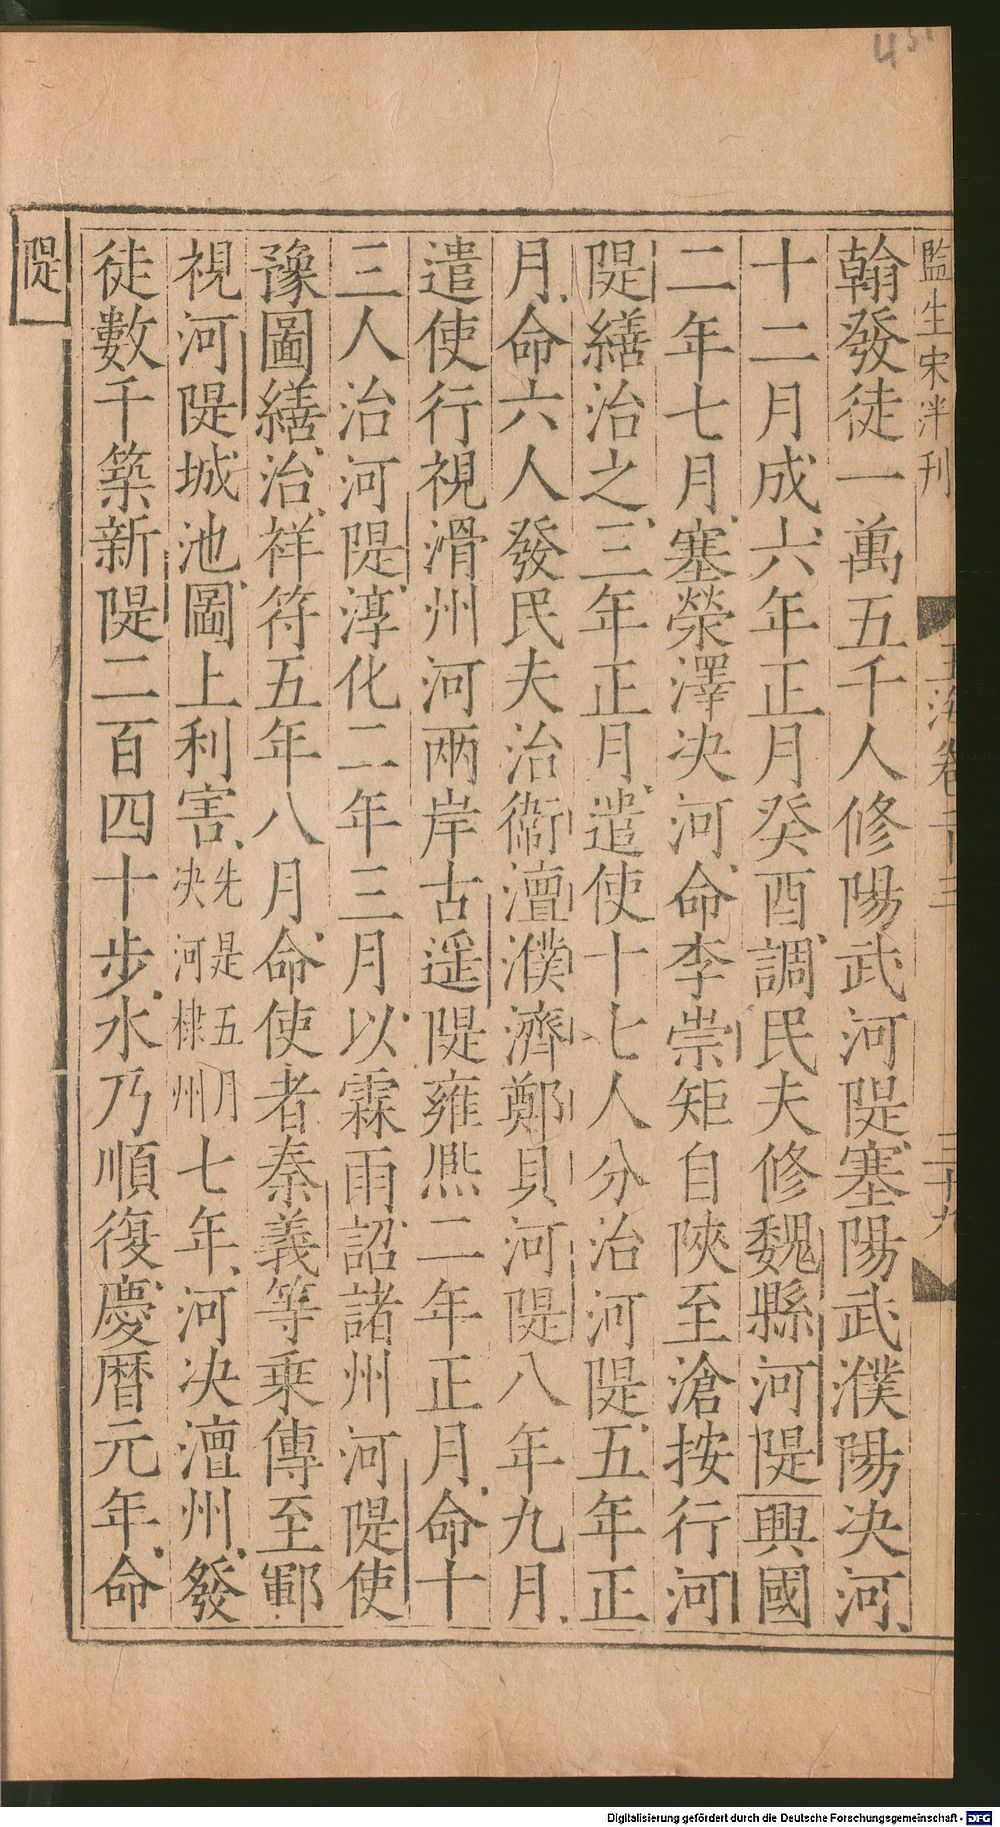 監生宋泮刊
玉海卷二十三
三十九
翰發徒一萬五千人修陽武河隄塞陽武濮陽决河
十二月成六年正月癸酉調民夫修魏縣河隄興國
二年七月塞滎澤决河命李崇矩自陝至滄按行河
隄繕治之三年正月遣使十七人分治河隄五年正
月命六人發民夫治衞澶濮濟鄭貝河隄八年九月
遣使行視滑州河兩岸古遥隄雍熙二年正月命十
三人治河隄淳化二年三月以霖雨詔諸州河隄使
豫圖繕治祥符五年八月命使者秦義等乘傳至鄆
視河隄城池圖上利害先是五月决河棣州七年河决澶州發
徒數千築新隄二百四十步水乃順復慶曆元年命
隄
451
Digitalisierung gefördert durch die Deutsche Forschungsgemeinschaft - DFG